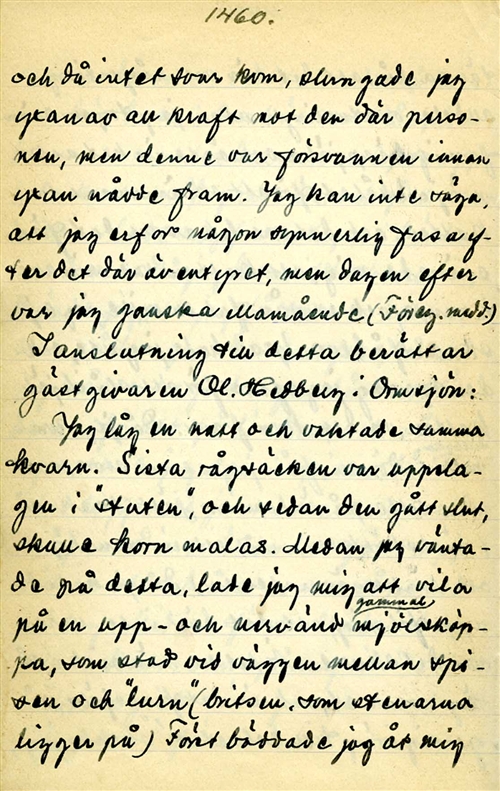 1460.
och då intet svar kom, slungade jag
yxan av all kraft mot den där perso-
nen, men denne var försvunnen innan
yxan nådde fram. Jag kan inte säga,
att jag erfor någon synnerlig fasa ef-
ter det där äventyret, men dagen efter
var jag ganska illamående (Föreg. medd.)
I anslutning till detta berättar
gästgivaren Ol. Hedberg i Ormsjön:
Jag låg en natt och vaktade samma
kvarn. Sista rågsäcken var uppsla-
gen i "stuten", och sedan den gått slut,
skulle korn malas. Medan jag vänta-
de på detta, lade jag mig att vila
på en upp- och nervänd gammal mjölskäp-
pa, som stod vid väggen mellan spi-
sen och "lurn" (britsen, som stenarna
ligger på) Först bäddade jag åt mig